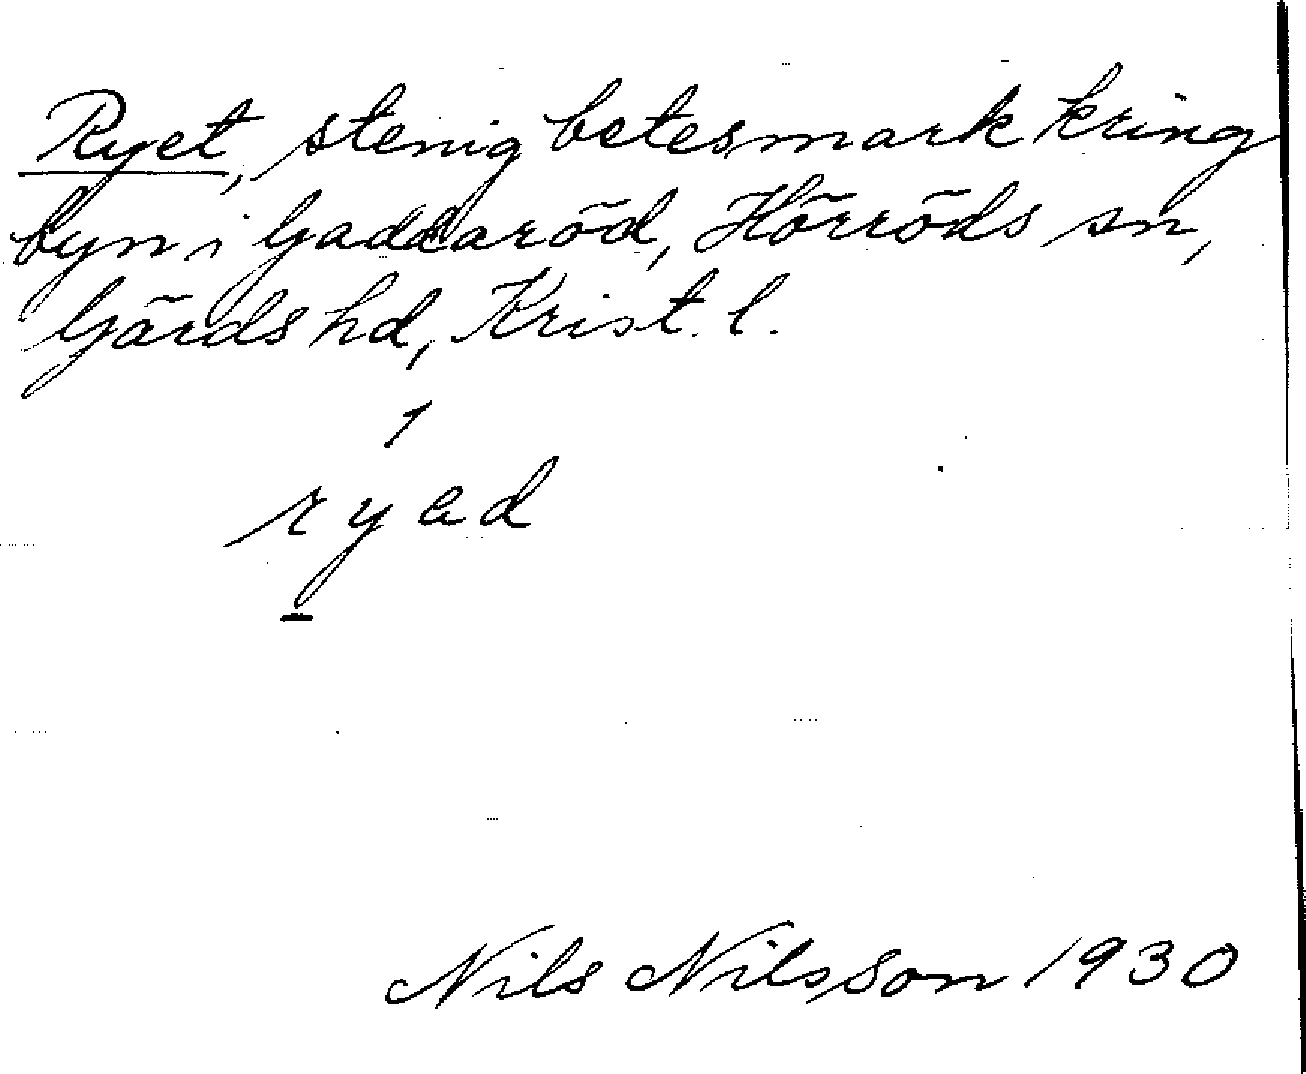 Ryet, stenig betesmark kring
byn i Gaddaröd, Hörröds sn,
Gärds hd, Krist. l.
ryad
Nils Nilsson 1930